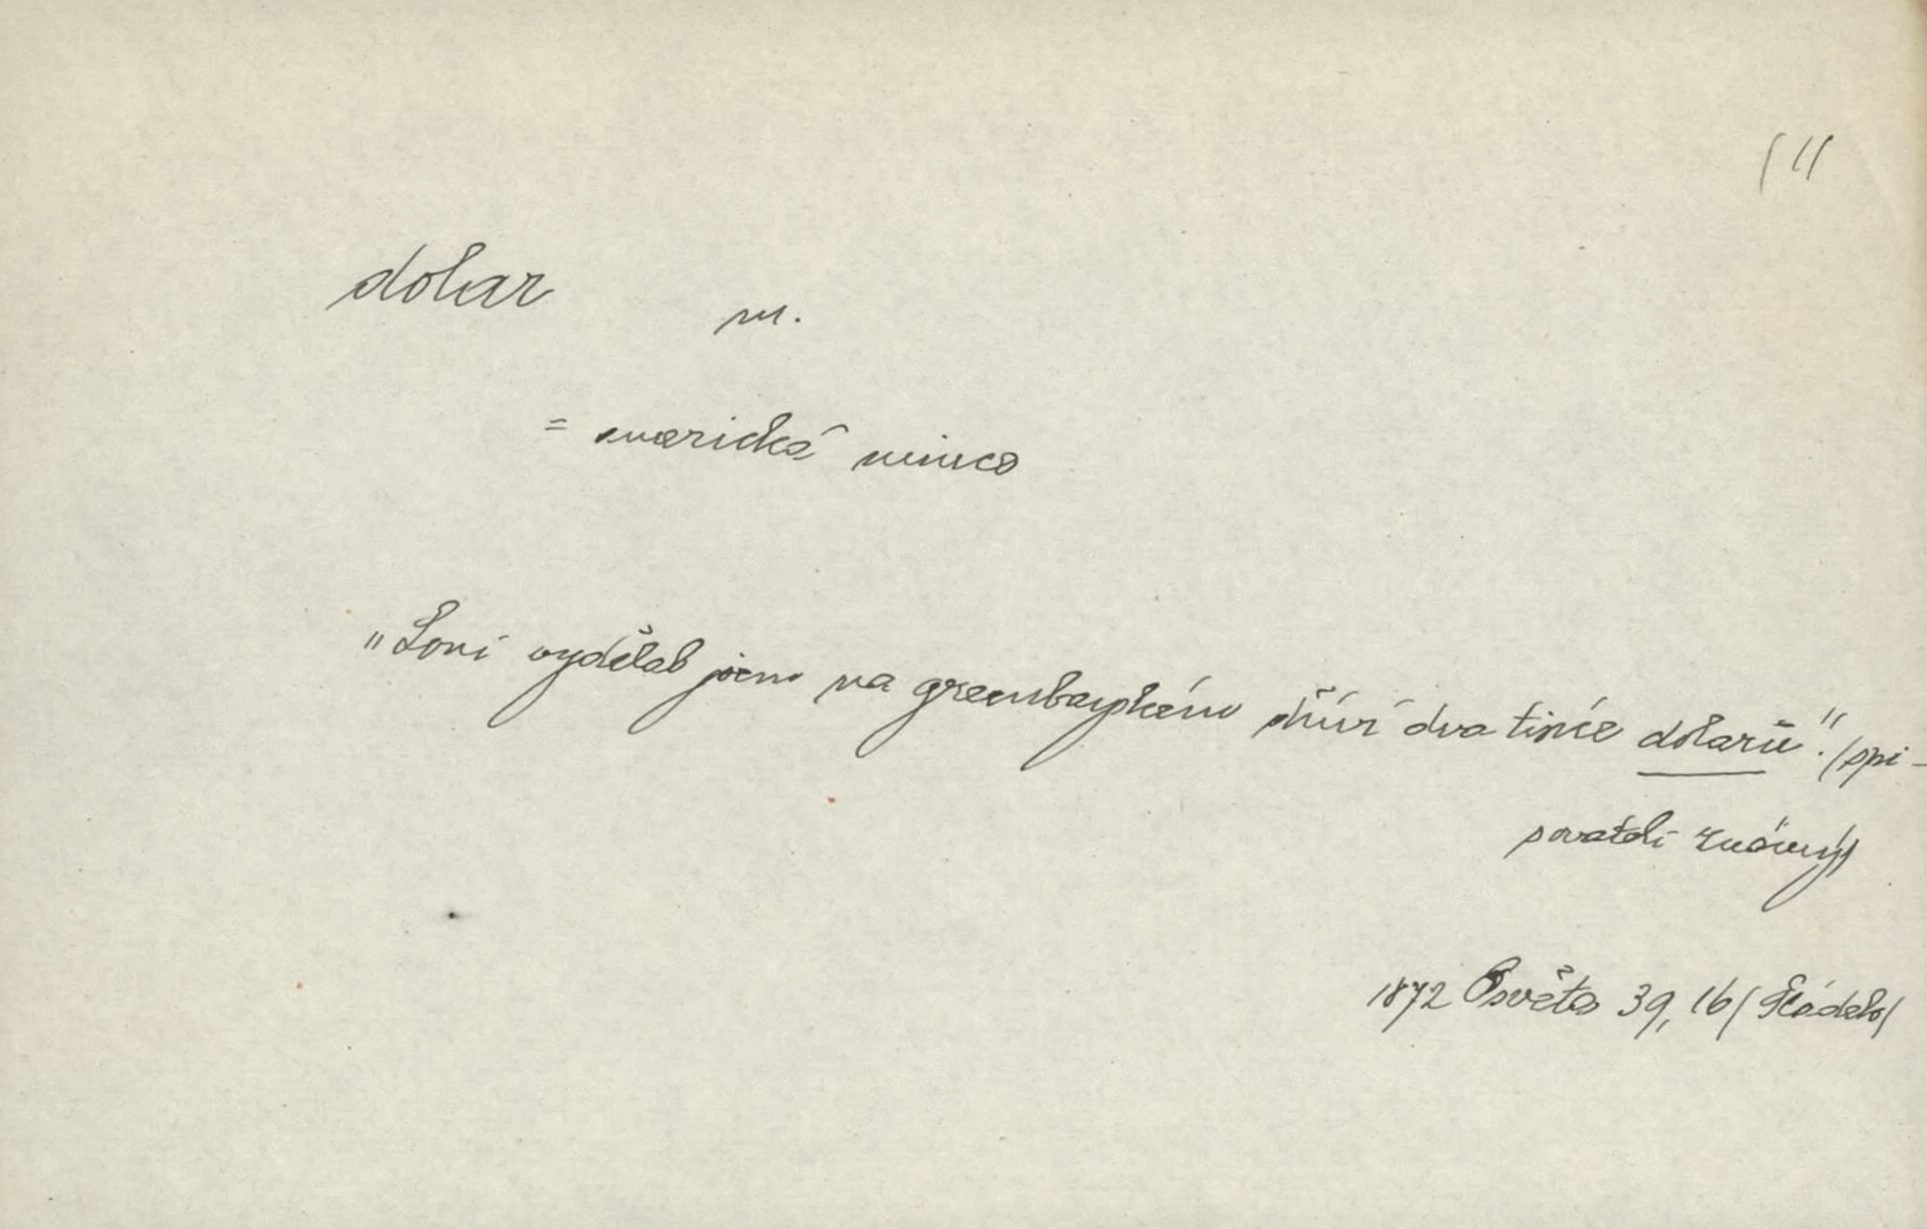 ( 11
dolar m.
= americká mince
„Loni vydělal jsem na greenbayském dříví dva tisíce dolarů." /spi-
sovateli známý/
1872 Osvěta 39, 16/